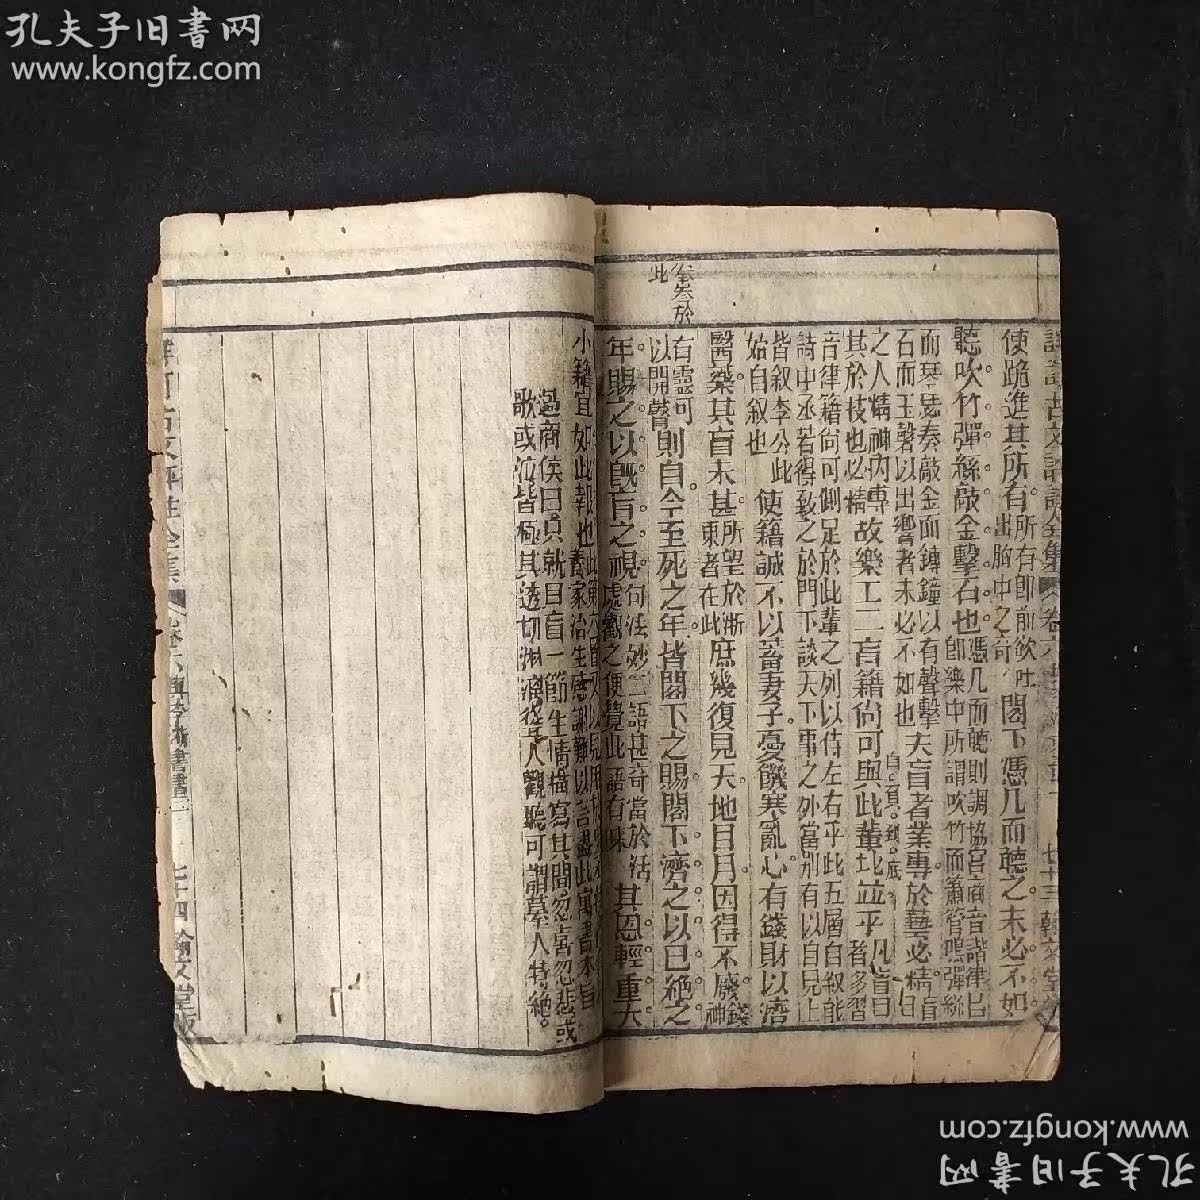 孔夫子旧書网
www.kongfz.com
使跪進其所有所有即前飲吐出胸中之奇閣下憑几而聽之未必不如
聽吹竹彈絲敲金擊石也憑几而聽則調協宮商音諧律呂即樂中所謂吹竹而簫管鳴彈絲
而琴瑟奏敲金而鏄鐘以有聲擊石而玉磬以出響者未必不如也夫盲者業專於藝必精盲目
之人精神內專其於技也必精故樂工皆盲籍尚可與此輩比並乎凡盲目者多習
音律籍尚可側足於此輩之列以侍左右乎此五層自叙能
詩中丞若得致之於門下談天下事之外當别有以自見上
皆叙李公此始自叙也使籍誠不以蓄妻子憂饑寒亂心有錢財以濟
醫藥其盲未甚所望於浙東者在此庶幾復見天地日月因得不廢錢神
有靈可以開瞽則自今至死之年皆閣下之賜閣下濟之以已絶之
年賜之以既盲之視句法妙二語甚奇當於活處觀之便覺此語有味其恩輕重大
小籍宜如此報也
過商侯曰貞就目盲一節生情描寫其間忽喜忽悲或
歌或泣皆極其透切淋漓從旁人觀聽可謂摹人特絶
此
卷六與李浙東書
七十四
翰文堂版
卷六
七十三
www.kongfz.com
孔夫子旧書网